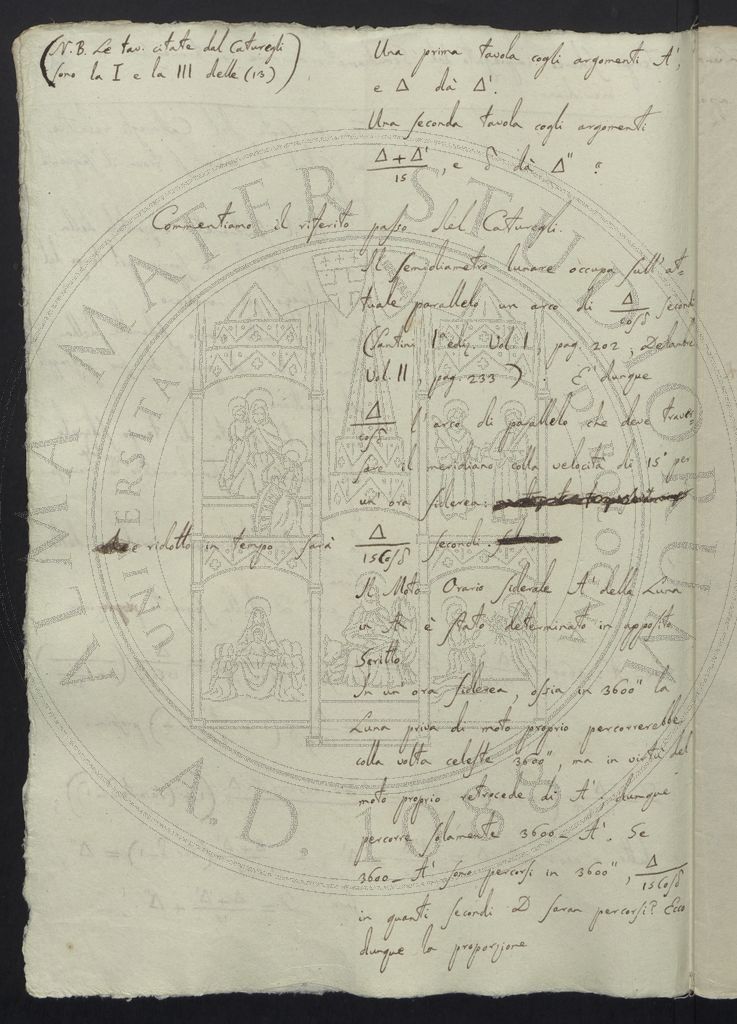 (N.B. Le tav. citate dal Caturegli
sono la I e la III delle (13))
Una prima tavola cogli argomenti A',
e Δ dà Δ'.
Una seconda tavola cogli argomenti
Δ + Δ' / 15, e δ dà Δ"
Commentiamo il riferito passo del Caturegli.
Il semidiametro lunare occupa sull'at=
tuale parallelo un arco di Δ / cosδ secondi
(Santini 1ª ediz. Vol. I, pag. 202; Delambre
Vol. II, pag. 233). E' dunque
Δ / cosδ l'arco di parallelo che deve traver=
sare il meridiano colla velocità di 15° per
un'ora siderea:
e ridotto in tempo sarà Δ / 15 Cosδ secondi
Il Moto Orario siderale A' della Luna
in AR è stato determinato in apposito
Scritto
In un'ora siderea, ossia in 3600" la
Luna priva di moto proprio percorrerebbe
colla volta celeste 3600", ma in virtù del
moto proprio retrocede di A'; dunque
percorre solamente 3600 - A'. Se
3600 - A' sono percorsi in 3600", Δ / 15 Cosδ
in quanti secondi D saran percorsi? Ecco
dunque la proporzione
ALMA MATER STUDIORUM
UNIVERSITÀ DI BOLOGNA
A.D. 1088